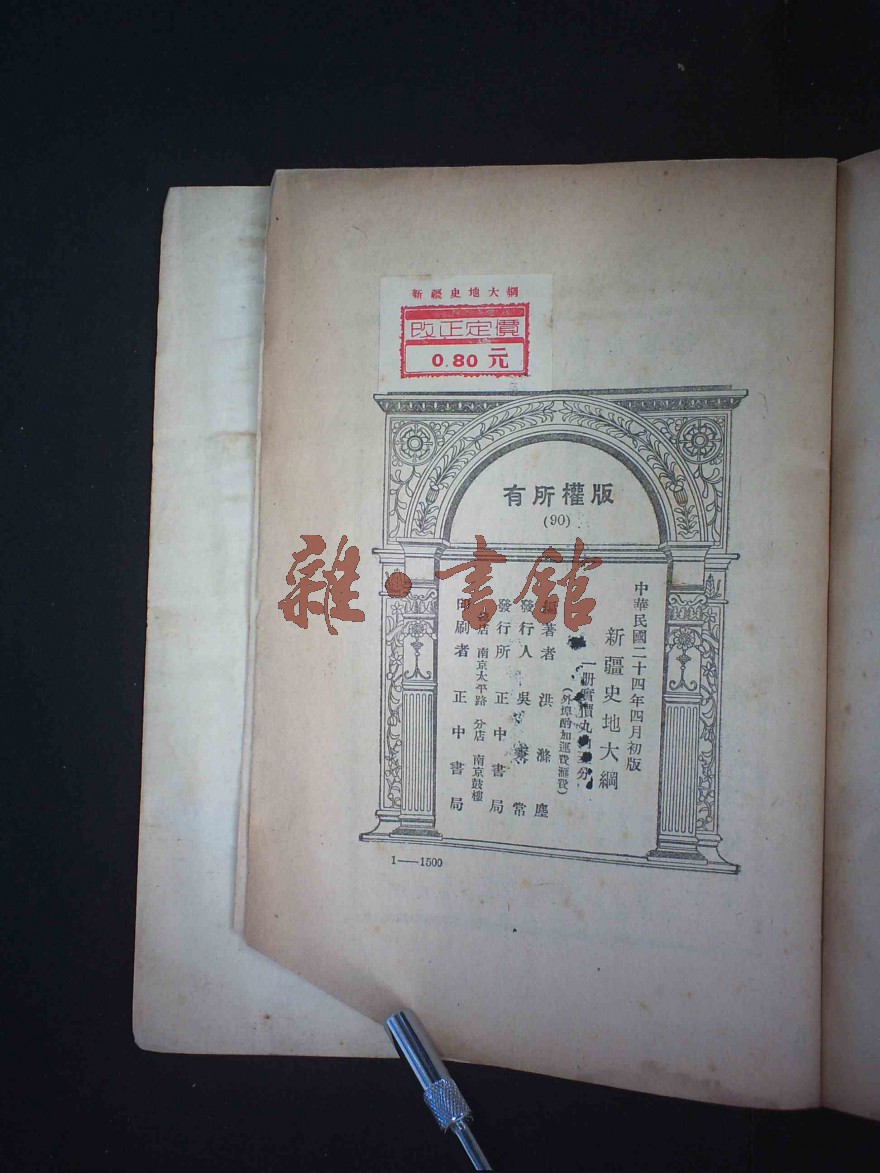 新疆史地大綱
改正定價
0.80 元
有所權版
(90)
中華民國二十四年四月初版
新疆史地大綱
一册實價
分
(外埠酌加運費滙費)
編著者 洪滌塵
發行人 吳秉常
發行所 正中書局
南京太平路 分店 南京鼓樓
印刷者 正中書局
1—1500
雜·書館